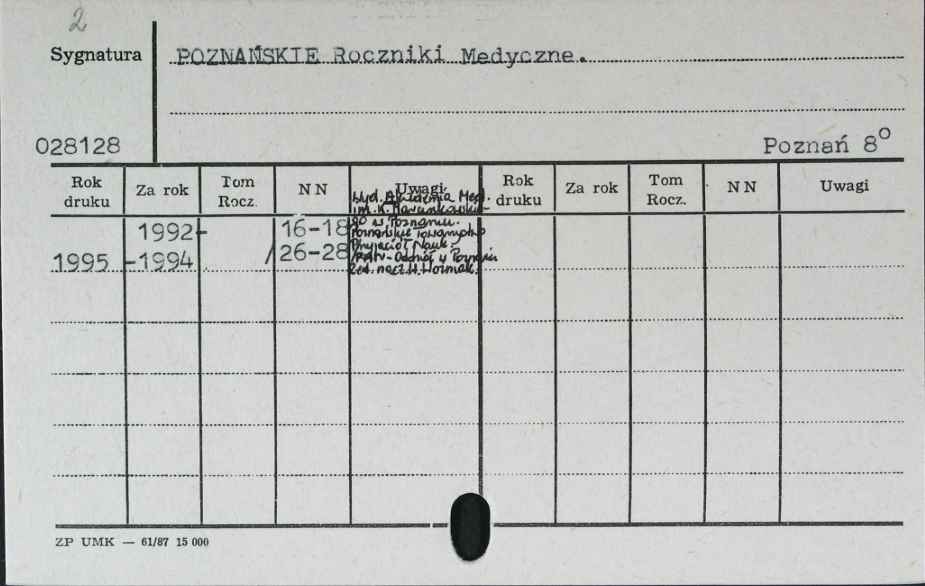 2
Sygnatura POZNAŃSKIE Roczniki Medyczne.
028128 Poznań 8°
Rok druku Za rok Tom Rocz. NN Uwagi Rok druku Za rok Tom Rocz. NN Uwagi
Wyd. Akademia Med.
im. K. Marcinkowskie-
1992- 16-18 go w Poznaniu.
Poznańskie Towarzystwo
1995 -1994 /26-28 Przyjaciół Nauk.
/PAN-Oddział w Poznaniu
Red. nacz. H. Woźniak.
ZP UMK — 61/87 15 000